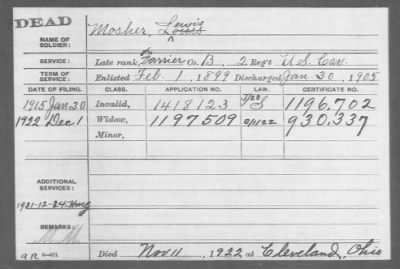 DEAD
NAME OF SOLDIER: Mosher, Lewis
SERVICE: Late rank, Farrier Co. B, 2 Reg't U S Cav.
TERM OF SERVICE: Enlisted Feb. 1, 1899 Discharged Jan 30, 1905
DATE OF FILING. CLASS. APPLICATION NO. LAW. CERTIFICATE NO.
1915 Jan 30 Invalid, 1418123 S 1196,702
1922 Dec 1 Widow, 1197509 930,337
Minor,
ADDITIONAL SERVICES:
1921-12-24
REMARKS:
Died Nov 11, 1922 at Cleveland, Ohio